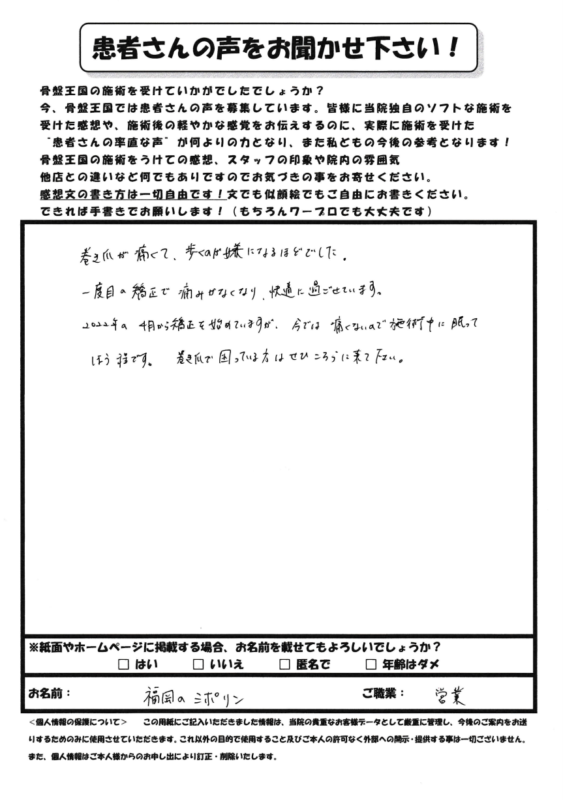 患者さんの声をお聞かせ下さい！
骨盤王国の施術を受けていかがでしたでしょうか？
今、骨盤王国では患者さんの声を募集しています。皆様に当院独自のソフトな施術を
受けた感想や、施術後の軽やかな感覚をお伝えするのに、実際に施術を受けた
"患者さんの率直な声"が何よりの力となり、また私どもの今後の参考となります！
骨盤王国の施術をうけての感想、スタッフの印象や院内の雰囲気
他店との違いなど何でもありですのでお気づきの事をお寄せください。
感想文の書き方は一切自由です！文でも似顔絵でもご自由にお書きください。
できれば手書きでお願いします！（もちろんワープロでも大丈夫です）
巻き爪が痛くて、歩くのが嫌になるほどでした。
一度目の矯正で痛みがなくなり、快適に過ごせています。
2022年の4月から矯正を始めていますが、今では痛くないので施術中に眠って
しまう程です。巻き爪で困っている方はぜひこちらに来て下さい。
※紙面やホームページに掲載する場合、お名前を載せてもよろしいでしょうか？
□ はい □ いいえ □ 匿名で □ 年齢はダメ
お名前： 福岡のミポリン ご職業： 営業
＜個人情報の保護について＞ この用紙にご記入いただきました情報は、当院の貴重なお客様データとして厳重に管理し、今後のご案内をお送
りするためのみに使用させていただきます。これ以外の目的で使用すること及びご本人の許可なく外部への開示・提供する事は一切ございません。
また、個人情報はご本人様からのお申し出により訂正・削除いたします。